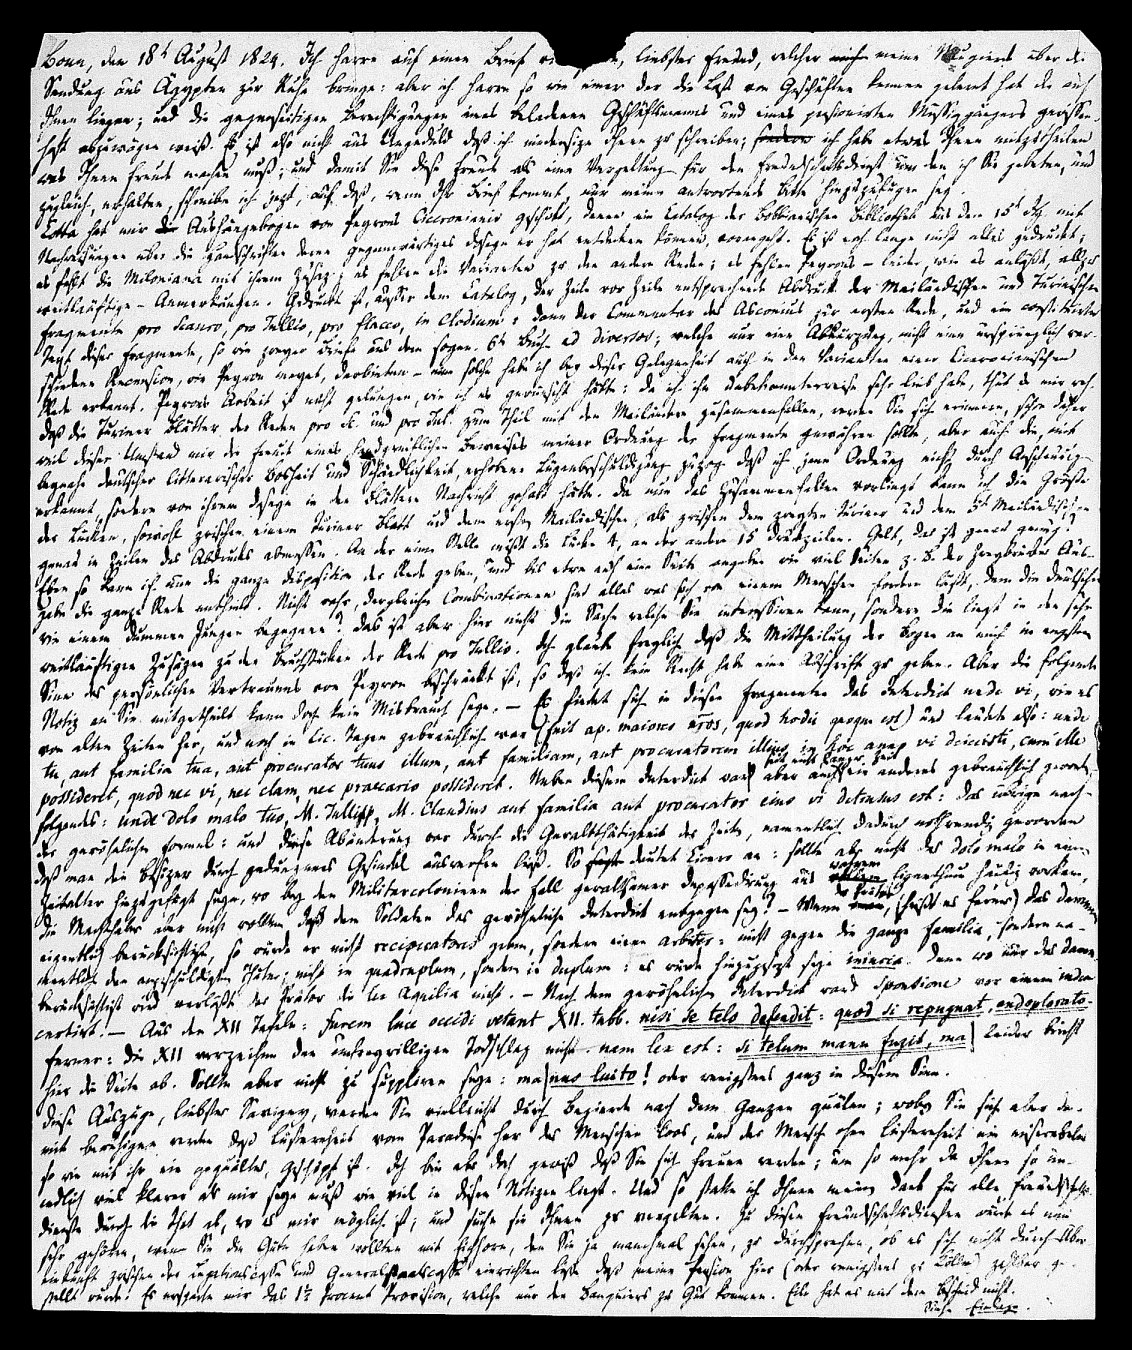 Bonn, den 18t August 1824. Ich harre auf einen Brief von, liebster Freund, welcher meine Neugierde über die
Sendung aus Ägypten zur Ruhe bringe: aber ich harre so wie einer der die Last von Geschäften kennen gelernt hat die auf
Ihnen liegen; und die gegenseitigen Berechtigungen eines beladenen Geschäftsmannes und eines pensionirten Müssiggängers gewissen-
haft abzuwägen weiß. Es ist also nicht aus Ungeduld daß ich niedersitze Ihnen zu schreiben; sondern ich habe etwas Ihnen mitzutheilen
was Ihnen Freude machen muß; und damit Sie diese Freude als eine Vergeltung für den Freundschaftsdienst um den ich Sie gebeten, und
zugleich, erhalten, schreibe ich jetzt, auf daß, wenn Ihr Brief kommt, nur meine antwortende Bitte hinzuzufügen sey.
Cotta hat mir die Aushängebogen von Peyrons Ciceronianis geschickt, denen ein Catalog der Bobbianischen Bibliothek aus dem 15t Jh. mit
Nachweisungen über die Handschriften deren gegenwärtiges Daseyn er hat entdecken können, vorangeht. Es ist noch lange nicht alles gedruckt;
es fehlt die Miloniana mit ihrem Zusatz; es fehlen die Varianten zu den andern Reden; es fehlen Peyrons – leider, wie es anläßt, allzu
weitläuftige – Anmerkungen. Gedruckt ist, ausser dem Catalog, der Zeile vor Zeile entsprechende Abdruck der Mailändischen und Turinischen
Fragmente pro Scauro, pro Tullio, pro Flacco, in Clodium: dann der Commentar des Asconius zur ersten Rede, und ein constituirter
Text dieser Fragmente, so wie zweyer Briefe aus dem sogen. 6t Buch ad diversos; welche nur eine Abkürzung, nicht eine ursprünglich ver-
schiedene Recension, wie Peyron meynt, darbieten – eine solche habe ich bey dieser Gelegenheit auch in den Varianten einer Ciceronianischen
Rede erkannt. Peyrons Arbeit ist nicht gelungen, wie ich es gewünscht hätte: da ich ihn unbekannterweise sehr lieb habe, thut es mir weh.
daß die Turiner Blätter der Reden pro Sc. und pro Tul. zum Theil mit den Mailändern zusammenfallen, werden Sie sich erinnern, schon daher
weil dieser Umstand mir die Freude eines handgreiflichen Beweises meiner Ordnung der Fragmente gewähren sollte, aber auch die, mit
beynahe deutscher litterarischer Bosheit und Schändlichkeit, erhobene Lügenbeschuldigung zuzog daß ich jene Ordnung nicht durch
erkannt, sondern von ihrem Daseyn in den Blättern Nachricht gehabt hätte. Da nun das Zusammenfallen vorliegt kann ich die Größe
der Lücken, sowohl zwischen einem Turiner Blatt und dem ersten Mailändischen, als zwischen dem zweyten Turiner und dem 5t Mailändischen
genau in Zeilen des Abdrucks abmessen. An der einen Stelle mißt die Lücke 4, an der andern 15 Druckzeilen. Gelt, das ist genau genug?
Eben so kann ich nun die ganze Disposition der Rede geben, und bis etwa auf eine Seite angeben wie viel Seiten z. B. der Zweybrücker Aus-
gabe die ganze Rede enthielt. Nicht wahr, dergleichen Combinationen sind alles was sich von einem Menschen fordern läßt, dem die Deutschen
wie einem dummen Jungen begegnen? Das ist aber hier nicht die Sache welche Sie interessiren kann, sondern die liegt in den sehr
weitläuftigen Zusätzen zu den Bruchstücken der Rede pro Tullio. Ich glaube freylich daß die Mittheilung der Bogen an mich im engsten
Sinn des persönlichen Vertrauens von Peyron beschränkt ist, so daß ich kein Recht habe eine Abschrift zu geben. Aber die folgende
Notiz an Sie mitgetheilt kann doch kein Misbrauch seyn. – Es findet sich in diesen Fragmenten das Interdict unde vi, wie es
von alten Zeiten her, und noch in Cic. Tagen gebräuchlich war (fuit ap. maiores nos, quod hodie quoque est) und lautete also: unde
tu, aut familia tua, aut procurator tuus illum, aut familiam, aut procuratorem illius, in hoc anno vi deiecisti, cum ille
possideret, quod nec vi, nec clam, nec praecario possideret. Neben diesem Interdict war seit nicht langer Zeit aber auch ein anderes gebräuchlich geworden
folgendes: unde dolo malo tuo, M. Tulli, M. Claudius aut familia aut procurator eius vi detrusus est: das übrige nach
der gewöhnlichen Formel: und diese Abänderung war durch die Gewaltthätigkeit der Zeiten, namentlich dadurch nothwendig geworden
daß man den Besitzer durch gedungenes Gesindel auswerfen ließ. So deutet Cicero an: sollte aber nicht das dolo malo in einem
Zeitalter hinzugefügt seyn, wo bey den Militarcolonieen der Fall gewaltsamer Depossedirung aus wahrem Eigenthum häufig vorkam,
die Machthaber aber nicht wollten daß den Soldaten das gewöhnliche Interdict entgegen sey? – Wenn der Prätor, (heißt es ferner) das damnum
eigentlich berücksichtigte, so würde er nicht recuperatores geben, sondern einen arbiter: nicht gegen die ganze familia, sondern na-
mentlich den angeschuldigten Thäter: nicht in quadruplum, sondern in duplum: es würde hinzugesetzt seyn iniuria. Denn wo nur das damn.
berücksichtigt wird verläßt der Prätor die lex Aquilia nicht. – Nach dem gewöhnlichen Interdict ward sponsione vor einem iudex
certirt. – Aus den XII Tafeln: furem luce occidi vetant XII. tabb. nisi se telo defendit: quod si repugnat, endoplorato.
ferner: die XII verzeihen den unfreywilligen Todschlag nicht. nam lex est: si telum manu fugit, ma| leider bricht
hier die Seite ab. Sollte aber nicht zu suppliren seyn: ma|nus luito! oder wenigstens ganz in diesem Sinn.
Diese Auszüge, liebster Savigny, werden Sie vielleicht durch Begierde nach dem Ganzen quälen; wobey Sie sich aber da-
mit beruhigen werden daß Lüsternheit vom Paradiese her des Menschen Loos, und der Mensch ohne Lüsternheit ein miserabeles
so wie mit ihr ein gequältes, Geschöpf ist. Ich bin aber doch gewiß daß Sie sich freuen werden; um so mehr da Ihnen so un-
endlich viel klarer als mir seyn muß wie viel in diesen Notizen liegt. Und so statte ich Ihnen meinen Dank für alle Freundschafts-
dienste durch die That ab, wo es mir möglich ist; und suche sie Ihnen zu vergelten. Zu diesen Freundschaftsdiensten würde es nun
sehr gehören, wenn Sie die Güte haben wollten mit Eichhorn, den Sie ja manchmal sehen, zu durchsprechen, ob es sich nicht durch Über-
einkunft zwischen der Legationscasse und Generalstaatscasse einrichten ließe daß meine Pension hier (oder wenigstens zu Kölln) zahlbar ge-
stellt würde. Es ersparte mir das 1½ Procent Provision, welche nur den Banquiers zu Gut kommen. Eile hat es mit dem Bescheid nicht.
Siehe Einlage.